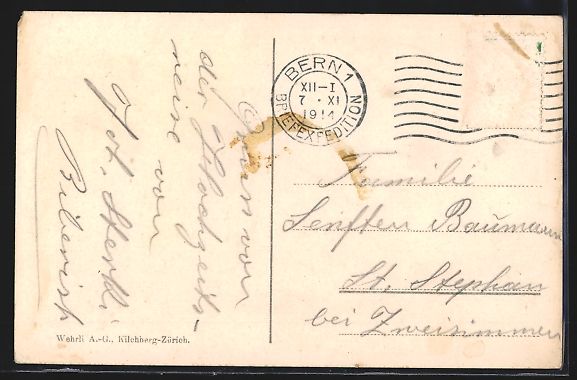 Gruss von
der Hochzeits-
reise von
Biberist
BERN 1
XII-I
7 · XI
1914
BRIEFEXPEDITION
Familie
Senften Baumann
St. Stephan
bei Zweisimmen
Wehrli A.-G., Kilchberg-Zürich.